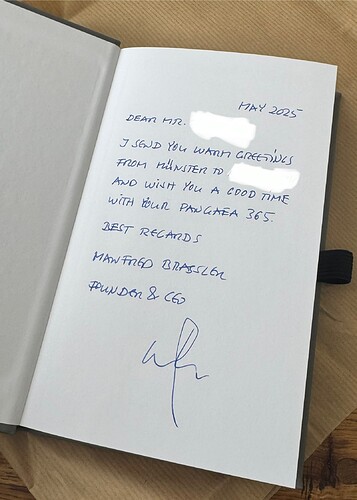 MAY 2025
DEAR MR.
I SEND YOU WARM GREETINGS
FROM MÜNSTER TO
AND WISH YOU A GOOD TIME
WITH YOUR PANGAEA 365.
BEST REGARDS
MANFRED BRASSLER
FOUNDER & CEO